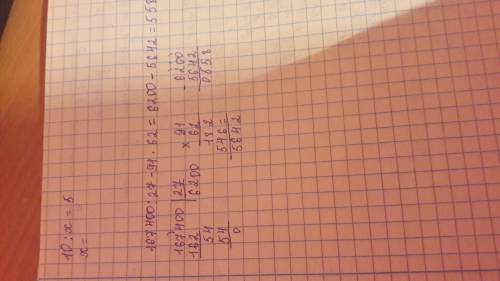 10 : x = 5
x =
167400 : 27 - 91 · 62 = 6200 - 5642 = 558
167400 | 27
162 | 6200
54
54
0
× 91
62
182
546
5642
- 6200
5642
0558